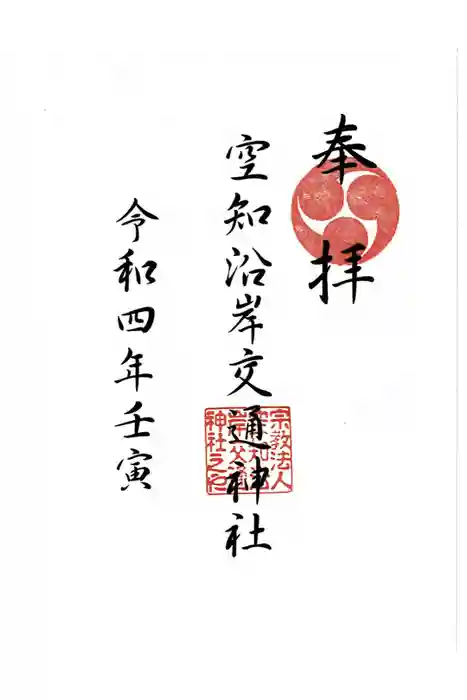 奉拝
空知沿岸交通神社
宗教法人
神社之印
令和四年壬寅